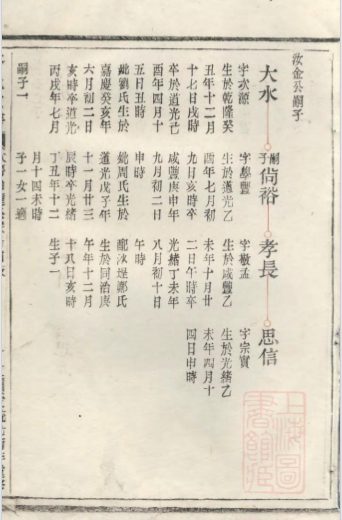 汝金公嗣子
大水
字次源
生於乾隆癸
丑年十二月
十七日戌時
卒於道光己
酉年四月十
五日丑時
妣劉氏生於
嘉慶癸亥年
六月初二日
亥時卒道光
丙戌年七月
嗣子一
嗣子尚裕
字學豐
生於道光乙
酉年七月初
九日亥時卒
咸豐庚申年
九月初二日
申時
妣周氏生於
道光戊子年
十一月廿三
辰時卒光緒
丁丑年十二
月十四未時
子一女一適
孝長
字敬孟
生於咸豐乙
未年十月廿
二日午時卒
光緒丁未年
八月初十日
午時
龍汝堤鄒氏
生於同治庚
午年十二月
十八日亥時
生子一
思信
字宗實
生於光緒乙
未年四月十
四日申時
上海圖
書館藏